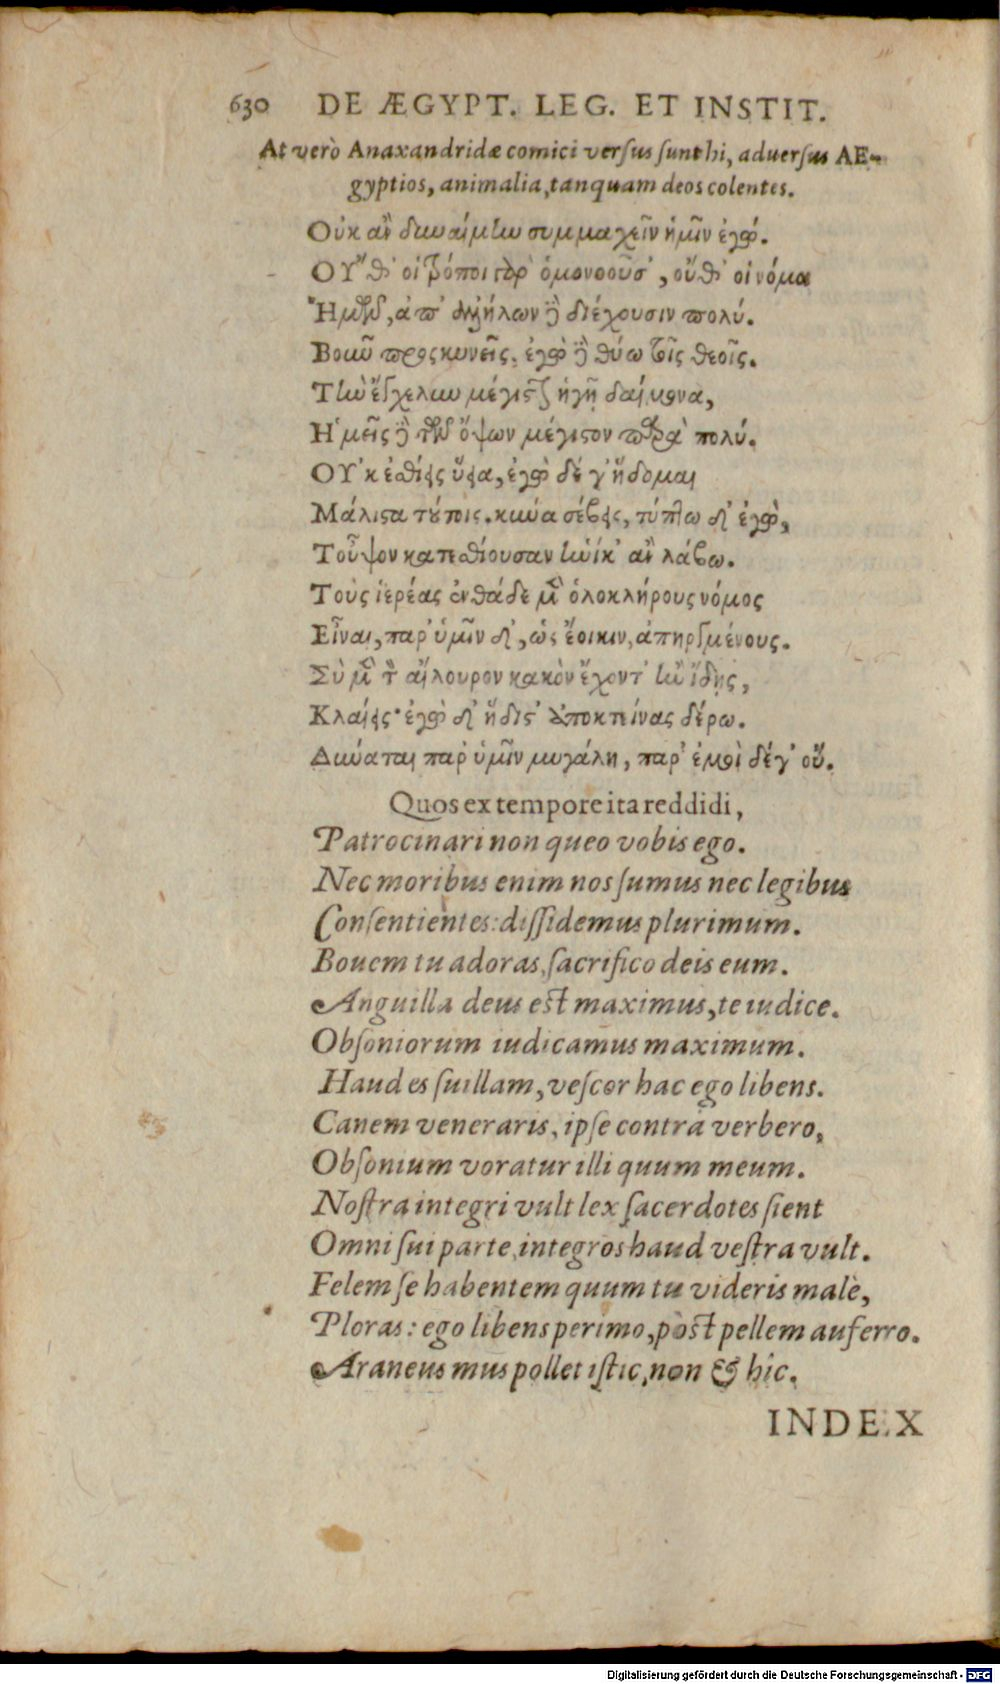 630 DE ÆGYPT. LEG. ET INSTIT.
At verò Anaxandridæ comici versus sunt hi, aduersus AE-
gyptios, animalia, tanquam deos colentes.
Οὐκ ἂν δυναίμην συμμαχεῖν ὑμῖν ἐγώ.
ΟΥ̓́θ' οἱ τρόποι γὰρ ὁμονοοῦσ', οὔθ' οἱ νόμοι
Ἡμῶν, ἀπ' ἀλλήλων ἢ διέχουσιν πολύ.
Βοιοῦ προςκυνεῖς, ἐγὼ ἢ θύω τοῖς θεοῖς.
Τὴν ἔγχελυν μέγιστον ἡγῇ δαίμονα,
Ἡμεῖς ἢ τῶν ὄψων μέγιστον παρὰ πολύ.
ΟΥ̓κ ἐσθίεις ὕεια, ἐγὼ δέ γ' ἥδομαι
Μάλιστα τούτοις. κύνα σέβεις, τύπτω δ' ἐγὼ,
Τοὖψον κατεσθίουσαν ἡνίκ' ἂν λάβω.
Τοὺς ἱερέας ἐνθάδε μὲν ὁλοκλήρους νόμος
Εἶναι, παρ' ὑμῖν δ', ὡς ἔοικεν, ἀπηργμένους.
Σὺ μὲν τὸν αἴλουρον κακὸν ἔχοντ' ἢν ἴδῃς,
Κλαίεις· ἐγὼ δ' ἥδιστ' ἀποκτείνας δέρω.
Δύναται παρ' ὑμῖν μυγάλη, παρ' ἐμοὶ δέ γ' οὔ.
Quos ex tempore ita reddidi,
Patrocinari non queo vobis ego.
Nec moribus enim nos sumus nec legibus
Consentientes: dissidemus plurimum.
Bouem tu adoras, sacrifico deis eum.
Anguilla deus est maximus, te iudice.
Obsoniorum iudicamus maximum.
Haud es suillam, vescor hac ego libens.
Canem veneraris, ipse contrà verbero,
Obsonium voratur illi quum meum.
Nostra integri vult lex sacerdotes sient
Omni sui parte, integros haud vestra vult.
Felem se habentem quum tu videris malè,
Ploras: ego libens perimo, pòst pellem aufero.
Araneus mus pollet istic, non & hîc.
INDEX
Digitalisierung gefördert durch die Deutsche Forschungsgemeinschaft - DFG